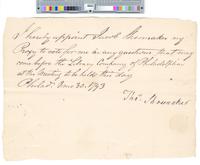 I hereby appoint Jacob Shoemaker my
Proxy to vote for me in any questions that may
come before the Library Company of Philadelphia
at the Meeting to be held this day
Philada. 30. 1793
Shoemaker